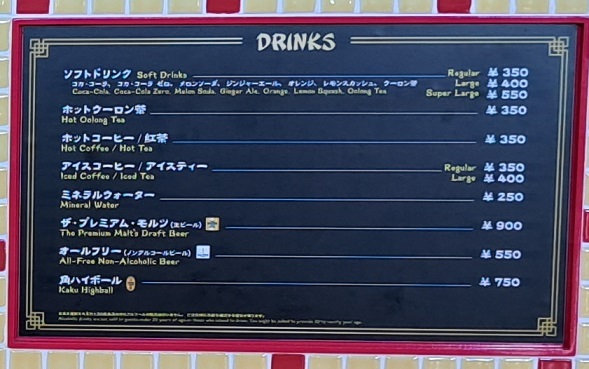 DRINKS
ソフトドリンク Soft Drinks Regular ¥ 350
コカ･コーラ、コカ･コーラ ゼロ、メロンソーダ、ジンジャーエール、オレンジ、レモンスカッシュ、ウーロン茶 Large ¥ 400
Coca-Cola, Coca-Cola Zero, Melon Soda, Ginger Ale, Orange, Lemon Squash, Oolong Tea Super Large ¥ 550
ホットウーロン茶 ¥ 350
Hot Oolong Tea
ホットコーヒー / 紅茶 ¥ 350
Hot Coffee / Hot Tea
アイスコーヒー / アイスティー Regular ¥ 350
Iced Coffee / Iced Tea Large ¥ 400
ミネラルウォーター ¥ 250
Mineral Water
ザ・プレミアム・モルツ (生ビール) ¥ 900
The Premium Malt's Draft Beer
オールフリー (ノンアルコールビール) ¥ 550
All-Free Non-Alcoholic Beer
角ハイボール ¥ 750
Kaku Highball